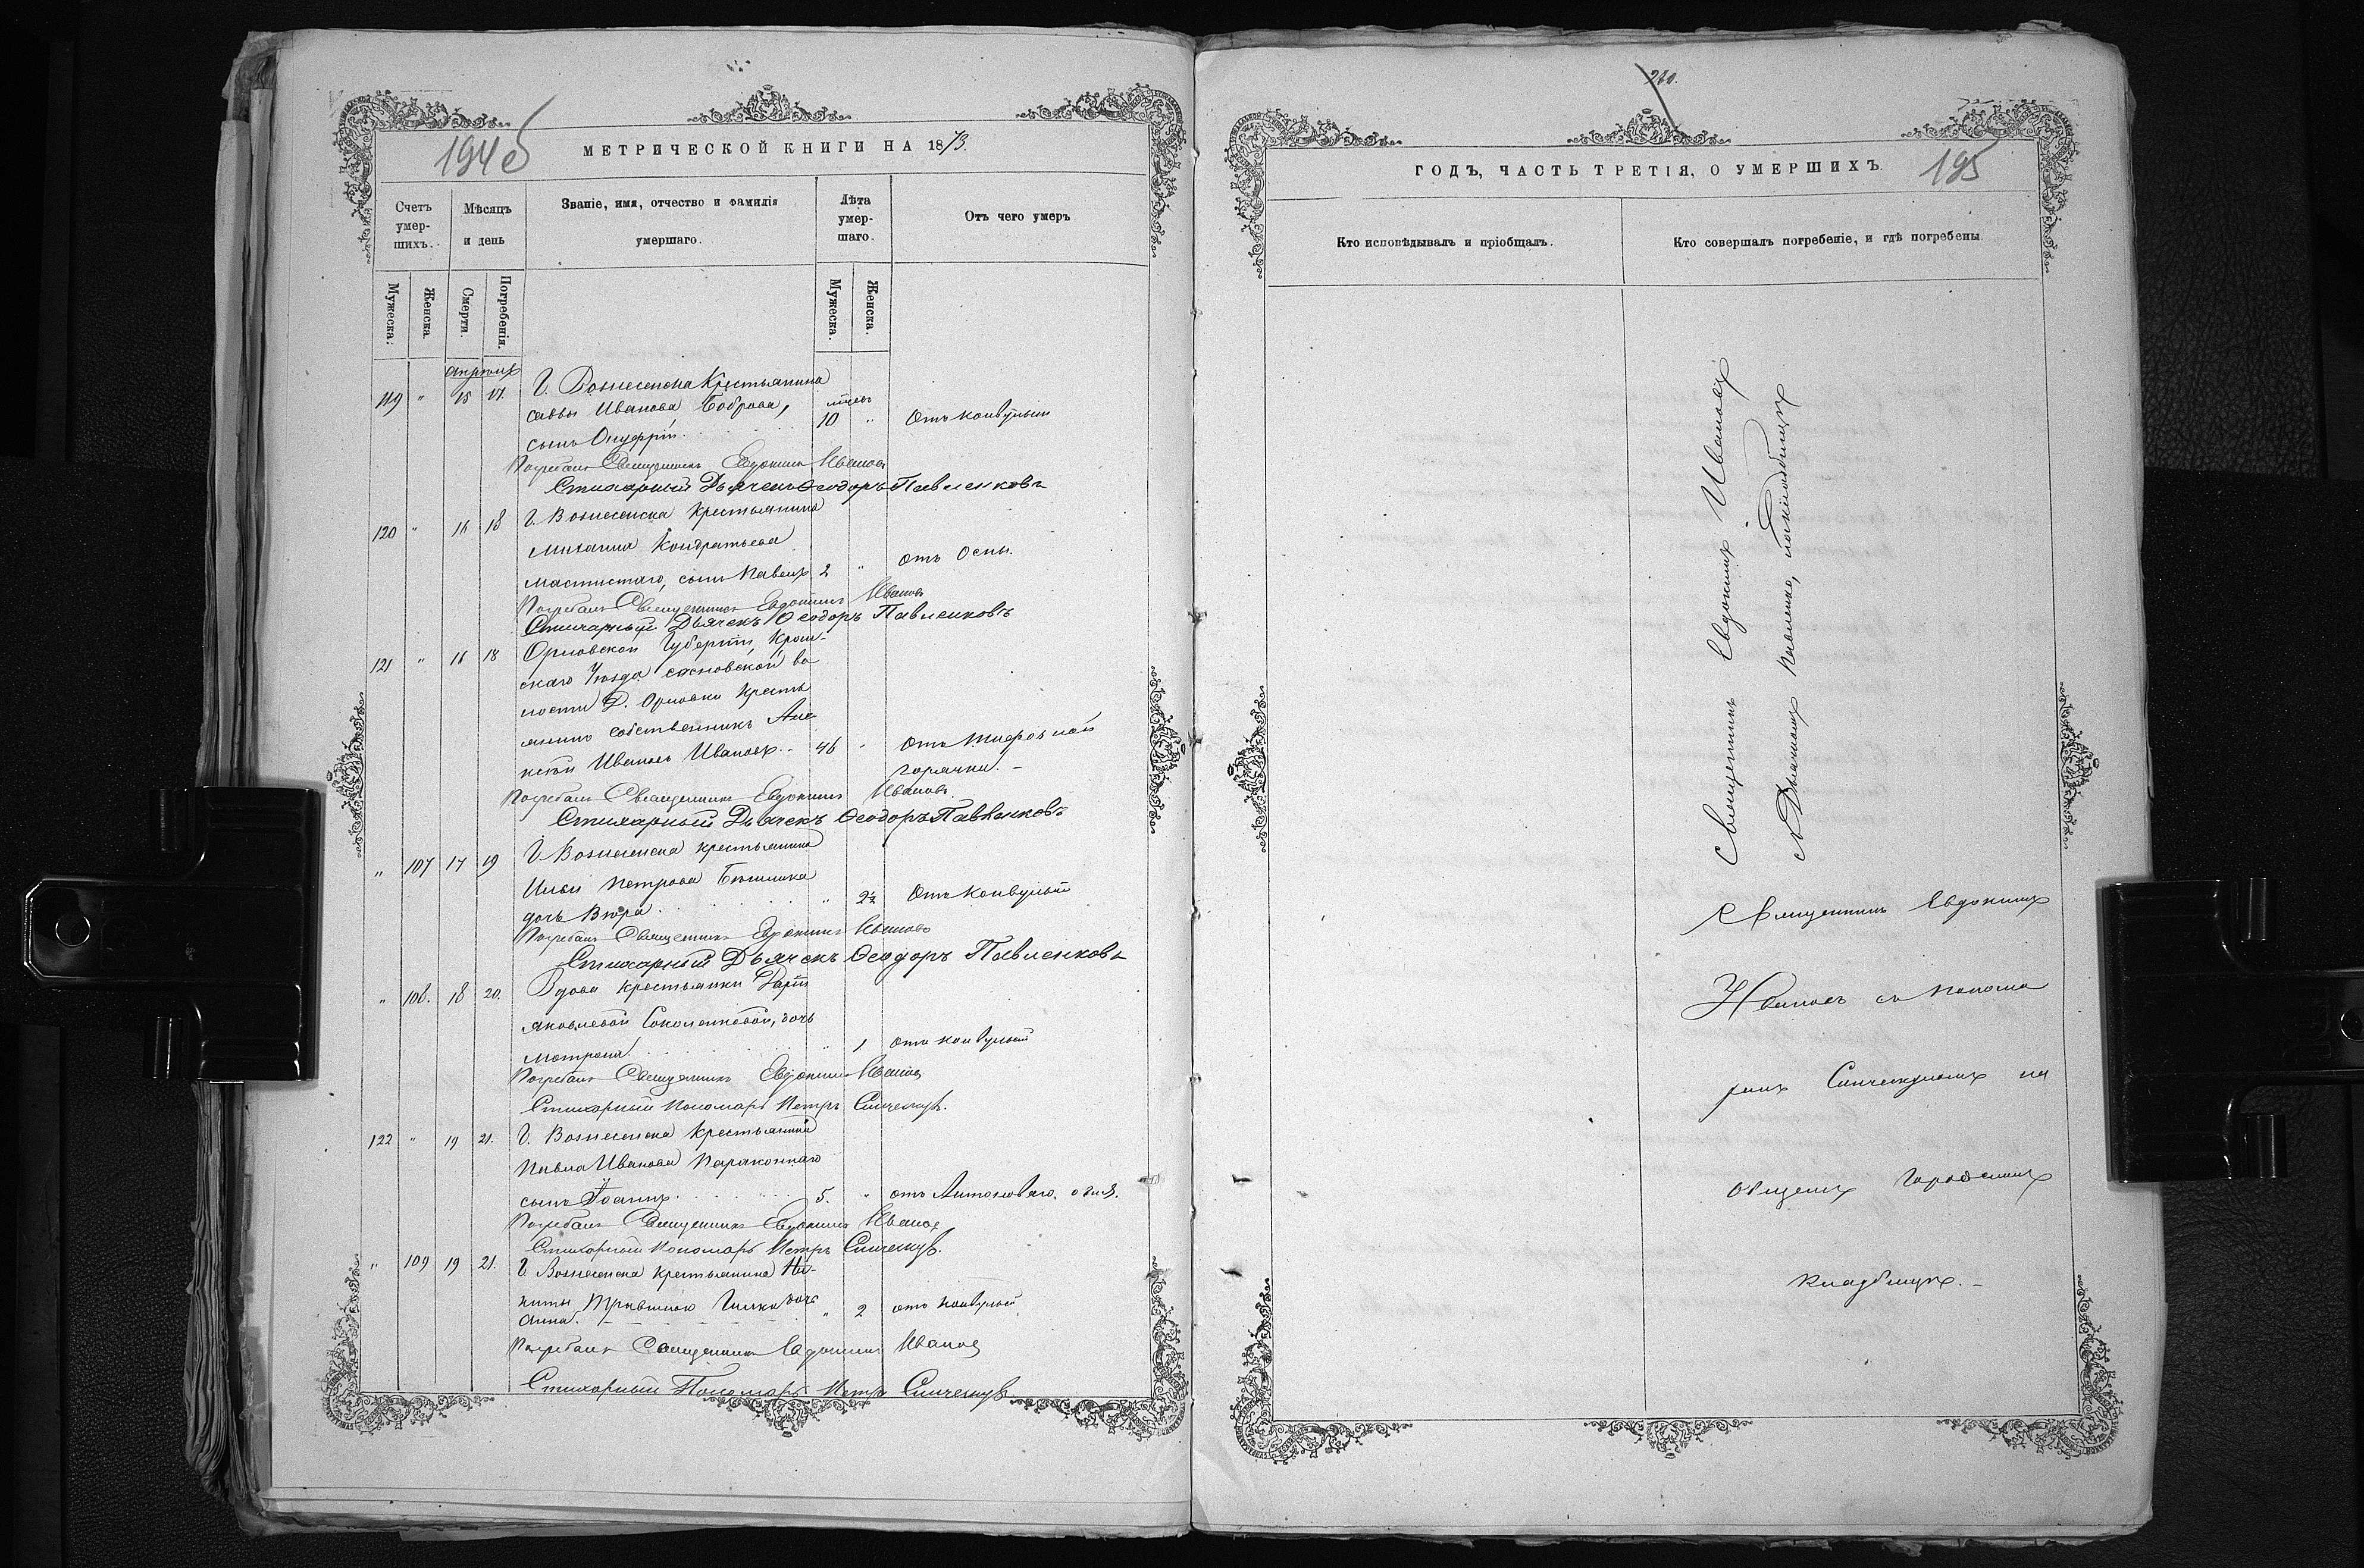 194об
МЕТРИЧЕСКОЙ КНИГИ НА 1873.
Счетъ умершихъ.
Мѣсяцъ и день
Званіе, имя, отчество и фамилія умершаго.
Лѣта умершаго.
Отъ чего умеръ
Мужеска.
Женска.
Смерти.
Погребенія.
Мужеска.
Женска.
апрѣль
119 " 15 17. Г. Вознесенска Крестьянина
саввы Иванова Боброва, мѣсяц
сынъ Онуфрій. 10 " Отъ конвульсій
Погребалъ Священникъ Евдокимъ Ивановъ
Стихарный Дьячекъ Ѳеодоръ Павленковъ
120 " 16 18 Г. Вознесенска Крестьянина
Михаила Кондратьева
Мастистаго, сынъ Павелъ 2 " отъ Оспы.
Погребалъ Священникъ Евдокимъ Ивановъ
Стихарный Дьячекъ Ѳеодоръ Павленковъ
121 " 16 18 Орловской Губерніи, Кром-
скаго Уѣзда сосновской во
лости Д. Орловки Кресть
янинъ собственникъ Але
ксѣй Ивановъ Ивановъ. - 46 " Отъ тифозной
горячки. -
Погребалъ Священникъ Евдокимъ Ивановъ
Стихарный Дьячекъ Ѳеодоръ Павленковъ
" 107 17 19 Г. Вознесенска крестьянина
Ильи Петрова
дочь Вѣра. " 2½ Отъ Конвульсій
Погребалъ Священникъ Евдокимъ Ивановъ
Стихарный Дьячекъ Ѳеодоръ Павленковъ
" 108. 18 20. Вдова крестьянки Даріи
Яковлевой Соколенковой, дочь
Матрона. " 1 отъ конвульсій
Погребалъ Священникъ Евдокимъ Ивановъ
Стихарный Пономарь Петръ
122 " 19 21. Г. Вознесенска Крестьянина
Павла Иванова
сынъ Іоаннъ. 5. " отъ Антонова огня.
Погребалъ Священникъ Евдокимъ Ивановъ
Стихарный Пономарь Петръ
" 109 19 21. Г. Вознесенска крестьянина Ни-
киты дочь
Анна. " 2 отъ конвульсій
Погребалъ Священникъ Евдокимъ Ивановъ
Стихарный Пономарь Петръ
260.
ГОДЪ, ЧАСТЬ ТРЕТІЯ, О УМЕРШИХЪ.
195
Кто исповѣдывалъ и пріобщалъ.
Кто совершалъ погребеніе, и гдѣ погребены
Священникъ Евдокимъ Ивановъ
съ Дьячкомъ Павленко, на кладбищѣ
Священникъ Евдокимъ
Ивановъ съ Понома
ремъ на
общемъ Городскомъ
Кладбищѣ. -